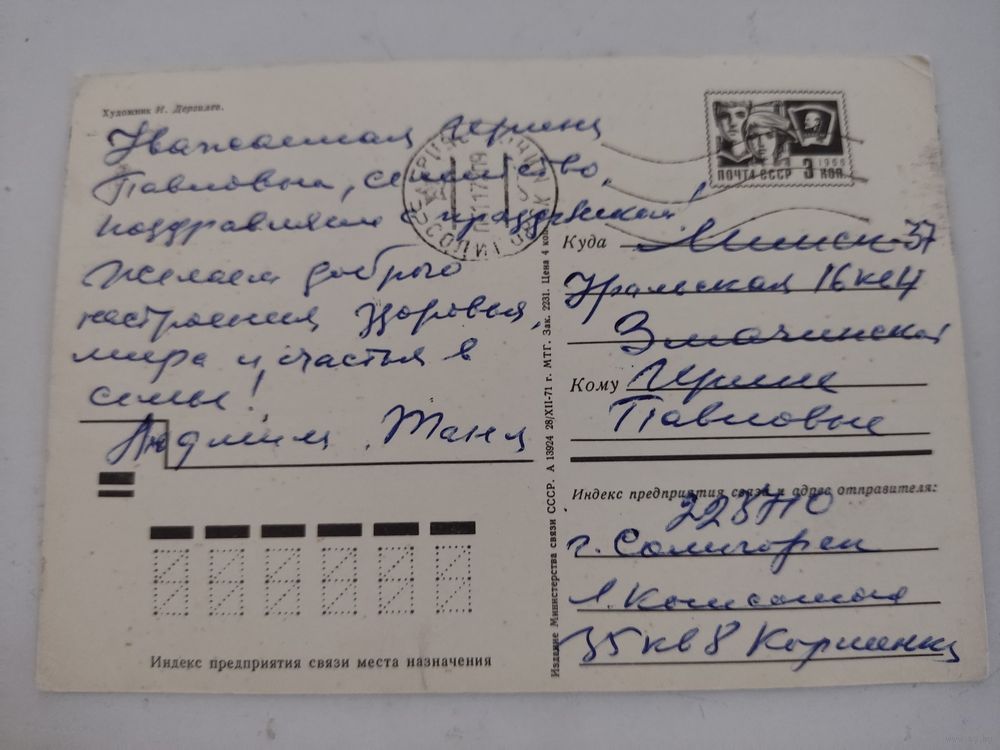 Художник И. Дергилев.
Уважаемая Ирина
Павловна, семейство,
поздравляем с праздником!
Желаем доброго
настроения здоровья,
мира и счастья в
семье!
Людмила, Таня
ПОЧТА СССР 3 КОП.
1966
Куда Минск-37
Уральская 16 кв 4
Змачинской
Кому Ирине
Павловне
Индекс предприятия связи и адрес отправителя:
223710
г. Солигорск
Л. Комсомола
35 кв 8 Корниенко
Индекс предприятия связи места назначения
Издание Министерства связи СССР. А 13924 28/XII-71 г. МТГ. Зак. 2231. Цена 4 коп.